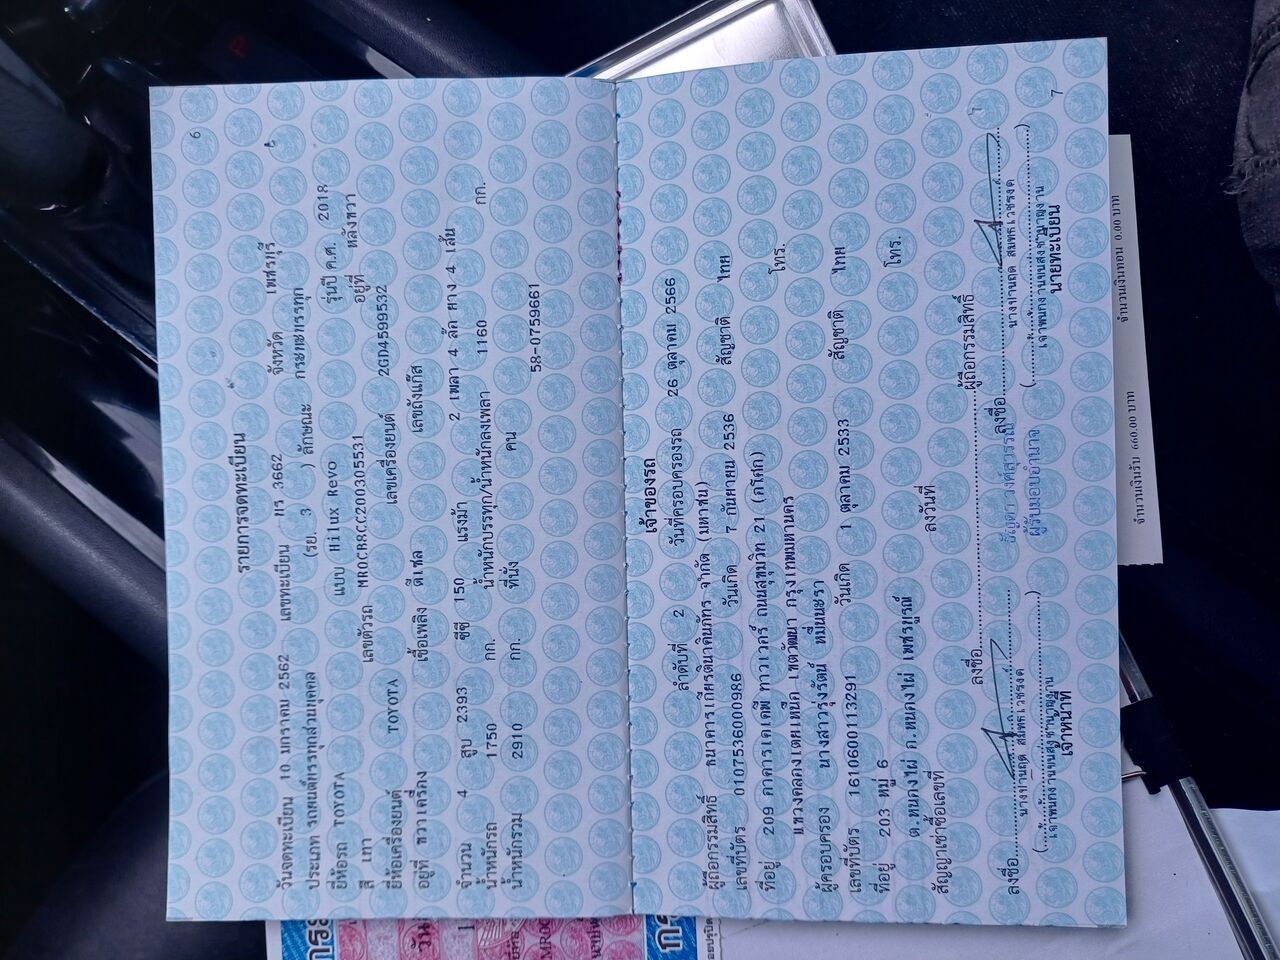 6
รายการจดทะเบียน
วันจดทะเบียน 10 มกราคม 2562 เลขทะเบียน 3662 จังหวัด เพชรบุรี
ประเภท รถยนต์บรรทุกส่วนบุคคล (รย. 3 ) ลักษณะ กระบะบรรทุก
ยี่ห้อรถ TOYOTA แบบ Hilux Revo รุ่นปี ค.ศ. 2018
สี เทา เลขตัวรถ MR0CB8CC200305531 อยู่ที่ หลังขวา
ยี่ห้อเครื่องยนต์ TOYOTA เลขเครื่องยนต์ 2GD4599532
อยู่ที่ ขวาเครื่อง เชื้อเพลิง ดีเซล เลขถังแก๊ส
จำนวน 4 สูบ 2393 ซีซี 150 แรงม้า 2 เพลา 4 ล้อ ยาง 4 เส้น
น้ำหนักรถ 1750 กก. น้ำหนักบรรทุก/น้ำหนักลงเพลา 1160 กก.
น้ำหนักรวม 2910 กก. ที่นั่ง คน
58-0759661
เจ้าของรถ
ลำดับที่ 2 วันที่ครอบครองรถ 26 ตุลาคม 2566
ผู้ถือกรรมสิทธิ์ ธนาคารเกียรตินาคินภัทร จำกัด (มหาชน)
เลขที่บัตร 0107536000986 วันเกิด 7 กันยายน 2536 สัญชาติ ไทย
ที่อยู่ 209 อาคารเคเคพี ทาวเวอร์ ถนนสุขุมวิท 21 (อโศก) โทร.
แขวงคลองเตยเหนือ เขตวัฒนา กรุงเทพมหานคร
ผู้ครอบครอง นางสาวรุ่งรัตน์ หมื่นนะรา
เลขที่บัตร 1610600113291 วันเกิด 1 ตุลาคม 2533 สัญชาติ ไทย
ที่อยู่ 203 หมู่ 6 โทร.
ต.หนองไผ่ อ.หนองไผ่ เพชรบูรณ์
สัญญาเช่าซื้อเลขที่ ลงวันที่
ลงชื่อ ผู้ถือกรรมสิทธิ์
ลงชื่อ ลงชื่อ
เจ้าพนักงานขนส่งชำนาญงาน ผู้รับมอบอำนาจ เจ้าพนักงานขนส่งชำนาญงาน
เจ้าหน้าที่ นายทะเบียน
7
จำนวนเงินรับ 660.00 บาท จำนวนเงินทอน 0.00 บาท